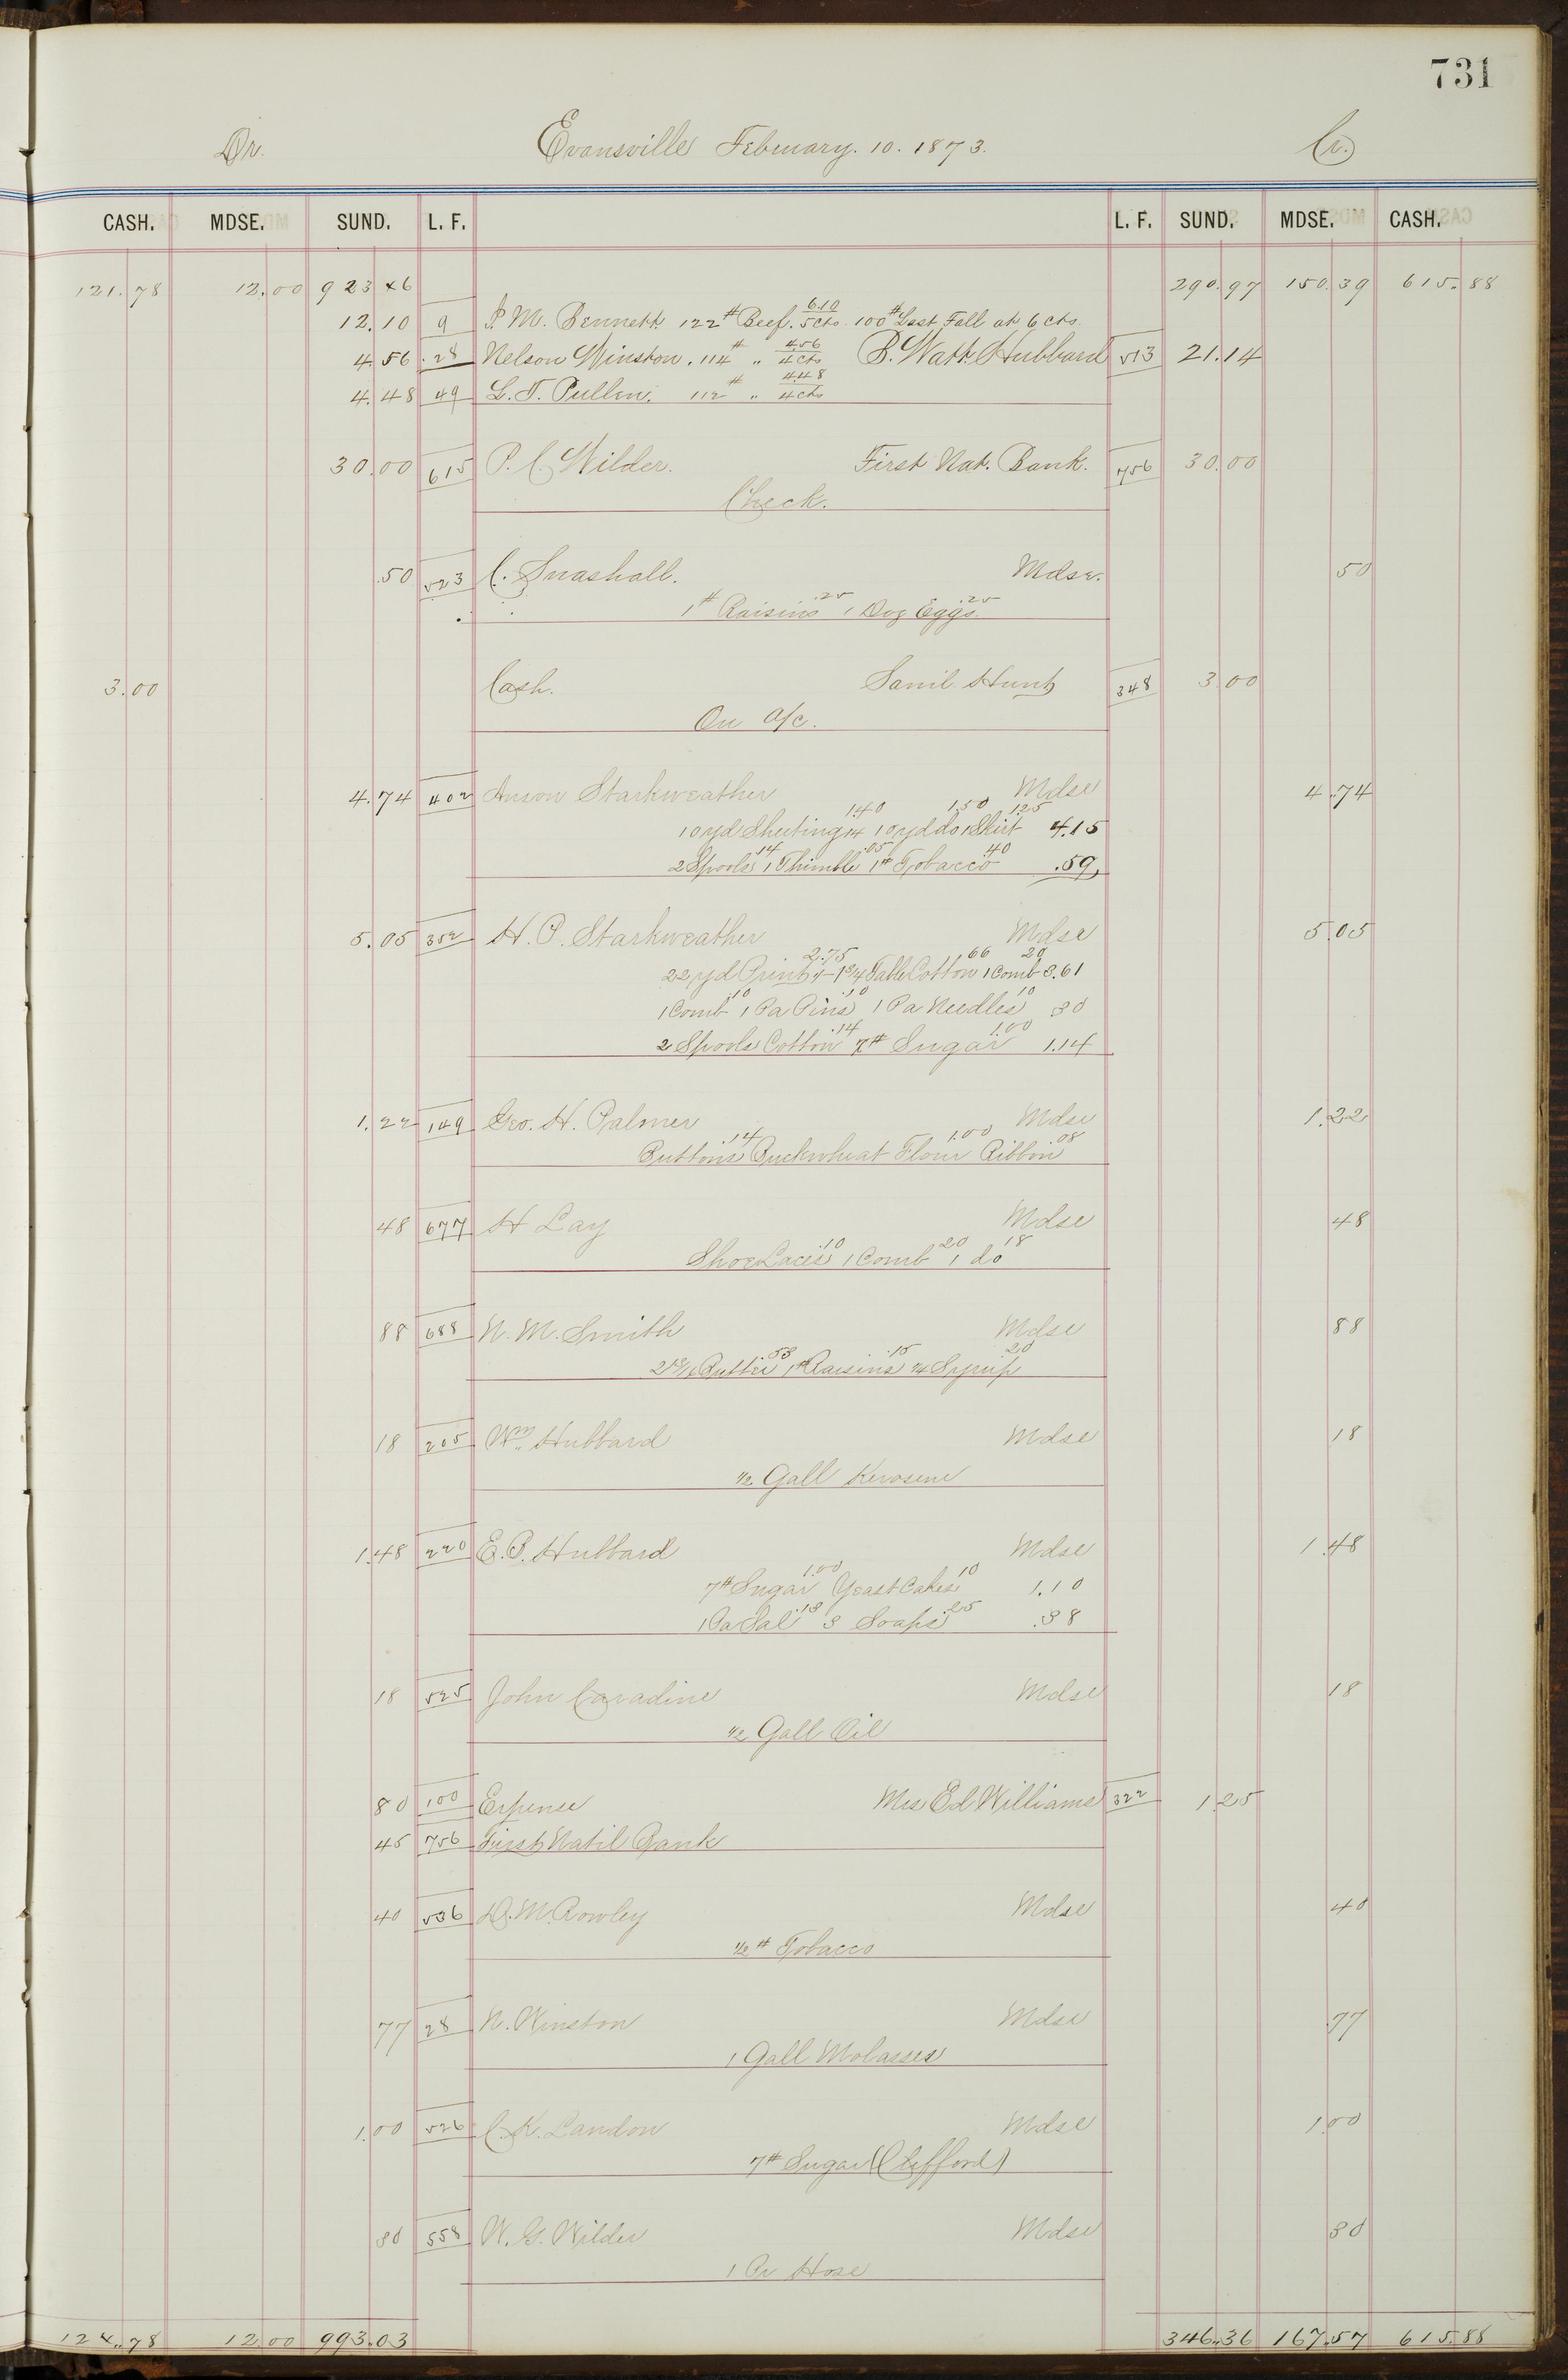 731
Dr. Evansville February. 10. 1873. Cr.
CASH. MDSE. SUND. L. F. L. F. SUND. MDSE. CASH.
121.78 12.00 923 46 290.97 150.39 615.88
12.10 9 J. M. Bennett 122# Beef. 6.10 5 cts. 100# Last Fall at 6 cts.
4.56 28 Nelson Winston. 114# " 4.56 4 cts B. Watt. Hubbard 513 21.14
4.48 49 L. T. Pullen. 112# " 4.48 4 cts
30.00 615 P. C. Wilder. First Nat. Bank. 756 30.00
Check.
.50 523 C. Snashall. Mdse. 50
1# Raisins .25 1 Doz Eggs .25
3.00 Cash. Saml. Hunt 348 3.00
On a/c.
4.74 402 Anson Starkweather Mdse 4.74
10 yd Sheeting 14 1.40 10 yd do 1.50 1 Skirt 1.25 4.15
2 Spools .14 1 Thimble .05 1# Tobacco 40 .59
5.05 352 H. P. Starkweather Mdse 5.05
22 yd Print 2.75 1 3/4 Table Cotton 66 1 Comb 20 3.61
1 Comb .10 1 Pa Pins .10 1 Pa Needles 10 30
2 Spools Cotton .14 7# Sugar 1.00 1.14
1.22 149 Geo. H. Palmer Mdse 1.22
Buttons .14 Buckwheat Flour 1.00 Ribbon 08
48 677 H Lay Mdse 48
Shoe Laces .10 1 Comb 20 1 do 18
88 688 N. M. Smith Mdse 88
Butter 53 1# Raisins .15 1/4 Syrup 20
18 205 Wm. Hubbard Mdse 18
1/2 Gall Kerosene
1.48 220 E. P. Hubbard Mdse 1.48
7# Sugar 1.00 Yeast Cakes 10 1.10
1 Pa Sal .13 3 Soaps 25 .38
18 525 John Caradine Mdse 18
1/2 Gall Oil
80 100 Expense Mrs Ed Williams 322 1.25
45 756 First Natil Bank
40 536 D. M. Rowley Mdse 40
1/2# Tobacco
77 28 N. Winston Mdse .77
1 Gall Molasses
1.00 526 C. K. Landon Mdse 1.00
7# Sugar (Clifford)
30 558 W. G. Wilder Mdse 30
1 Pr Hose
124.78 12.00 993.03 346.36 167.57 615.88